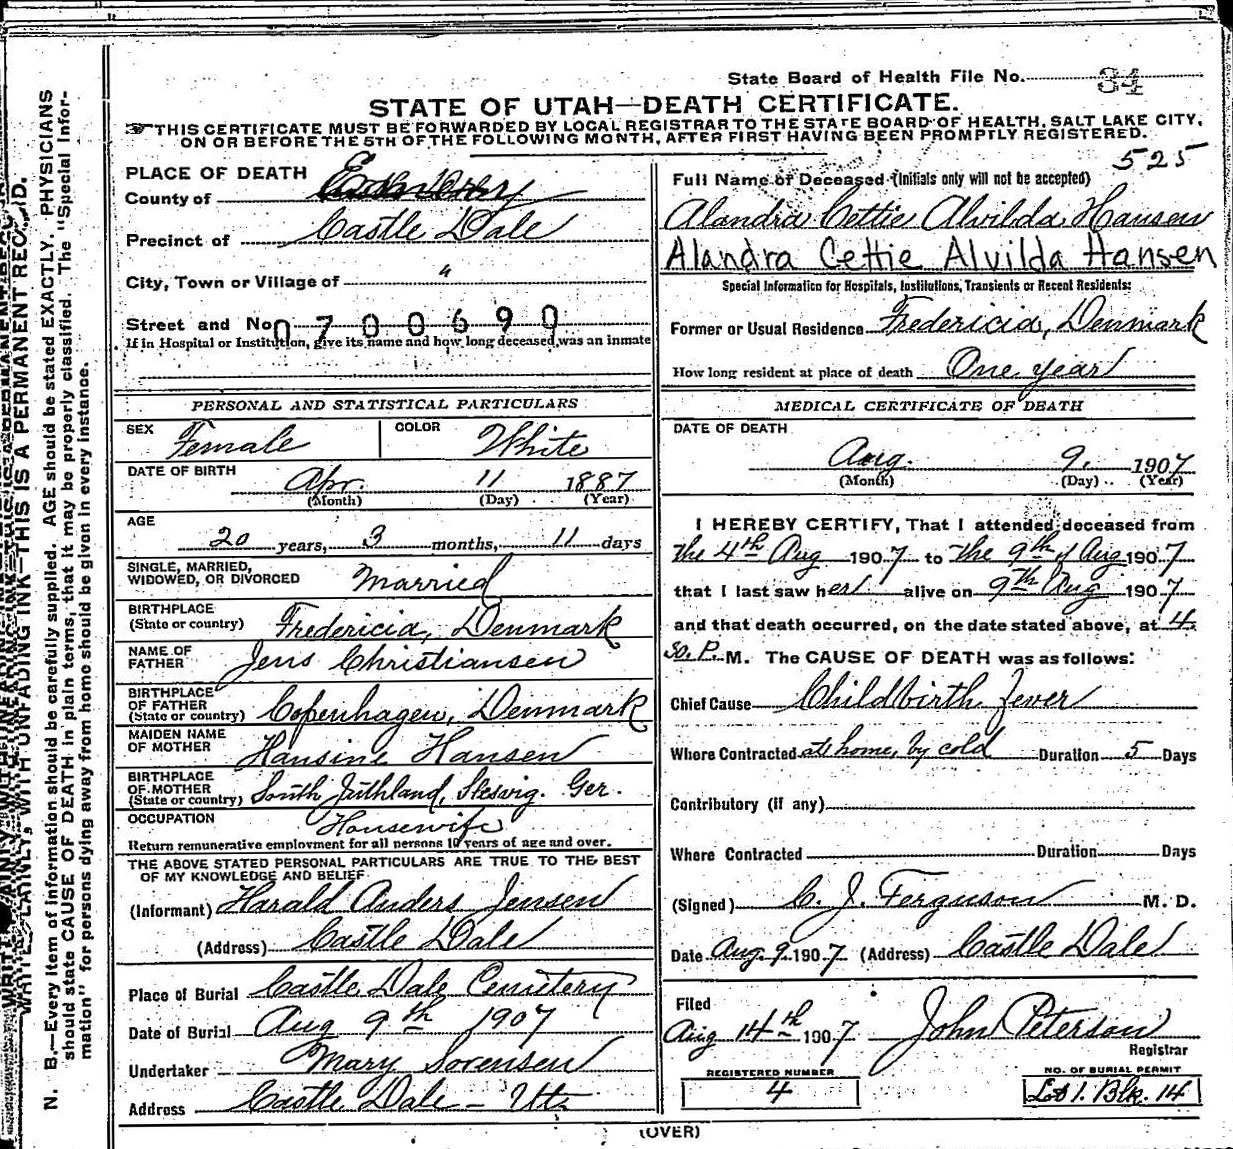 State Board of Health File No. 84
STATE OF UTAH—DEATH CERTIFICATE.
THIS CERTIFICATE MUST BE FORWARDED BY LOCAL REGISTRAR TO THE STATE BOARD OF HEALTH, SALT LAKE CITY,
ON OR BEFORE THE 5TH OF THE FOLLOWING MONTH, AFTER FIRST HAVING BEEN PROMPTLY REGISTERED.
525
PLACE OF DEATH
County of Emery
Precinct of Castle Dale
City, Town or Village of 4
Street and No. 0700690
If in Hospital or Institution, give its name and how long deceased was an inmate
Full Name of Deceased (Initials only will not be accepted)
Alandra Cettie Alvilda Hansen
Alandra Cettie Alvilda Hansen
Special Information for Hospitals, Institutions, Transients or Recent Residents:
Former or Usual Residence Fredericia, Denmark
How long resident at place of death One year
PERSONAL AND STATISTICAL PARTICULARS
SEX Female COLOR White
DATE OF BIRTH
Apr. 11 1887
(Month) (Day) (Year)
AGE
20 years, 3 months, 11 days
SINGLE, MARRIED,
WIDOWED, OR DIVORCED Married
BIRTHPLACE
(State or country) Fredericia, Denmark
NAME OF
FATHER Jens Christiansen
BIRTHPLACE
OF FATHER
(State or country) Copenhagen, Denmark
MAIDEN NAME
OF MOTHER Hansine Hansen
BIRTHPLACE
OF MOTHER
(State or country) South Juthland, Slesvig. Ger.
OCCUPATION Housewife
Return remunerative employment for all persons 10 years of age and over.
THE ABOVE STATED PERSONAL PARTICULARS ARE TRUE TO THE BEST
OF MY KNOWLEDGE AND BELIEF
(Informant) Harald Anders Jensen
(Address) Castle Dale
Place of Burial Castle Dale Cemetery
Date of Burial Aug 9th 1907
Undertaker Mary Sorensen
Address Castle Dale - Ut.
MEDICAL CERTIFICATE OF DEATH
DATE OF DEATH
Aug. 9, 1907
(Month) (Day) (Year)
I HEREBY CERTIFY, That I attended deceased from
the 4th Aug 1907 to the 9th of Aug 1907
that I last saw her alive on 9th Aug 1907
and that death occurred, on the date stated above, at 4.
30. P. M. The CAUSE OF DEATH was as follows:
Chief Cause Childbirth fever
Where Contracted at home, by cold Duration 5 Days
Contributory (if any)
Where Contracted Duration Days
(Signed) C. J. Ferguson M. D.
Date Aug. 9. 1907 (Address) Castle Dale
Filed
Aug 14th 1907 John Peterson
Registrar
REGISTERED NUMBER
4
NO. OF BURIAL PERMIT
Lot 1. Blk. 14
(OVER)
WITH UNFADING INK—THIS IS A PERMANENT RECORD.
N. B.—Every item of information should be carefully supplied. AGE should be stated EXACTLY. PHYSICIANS
should state CAUSE OF DEATH in plain terms, that it may be properly classified. The "Special Infor-
mation" for persons dying away from home should be given in every instance.